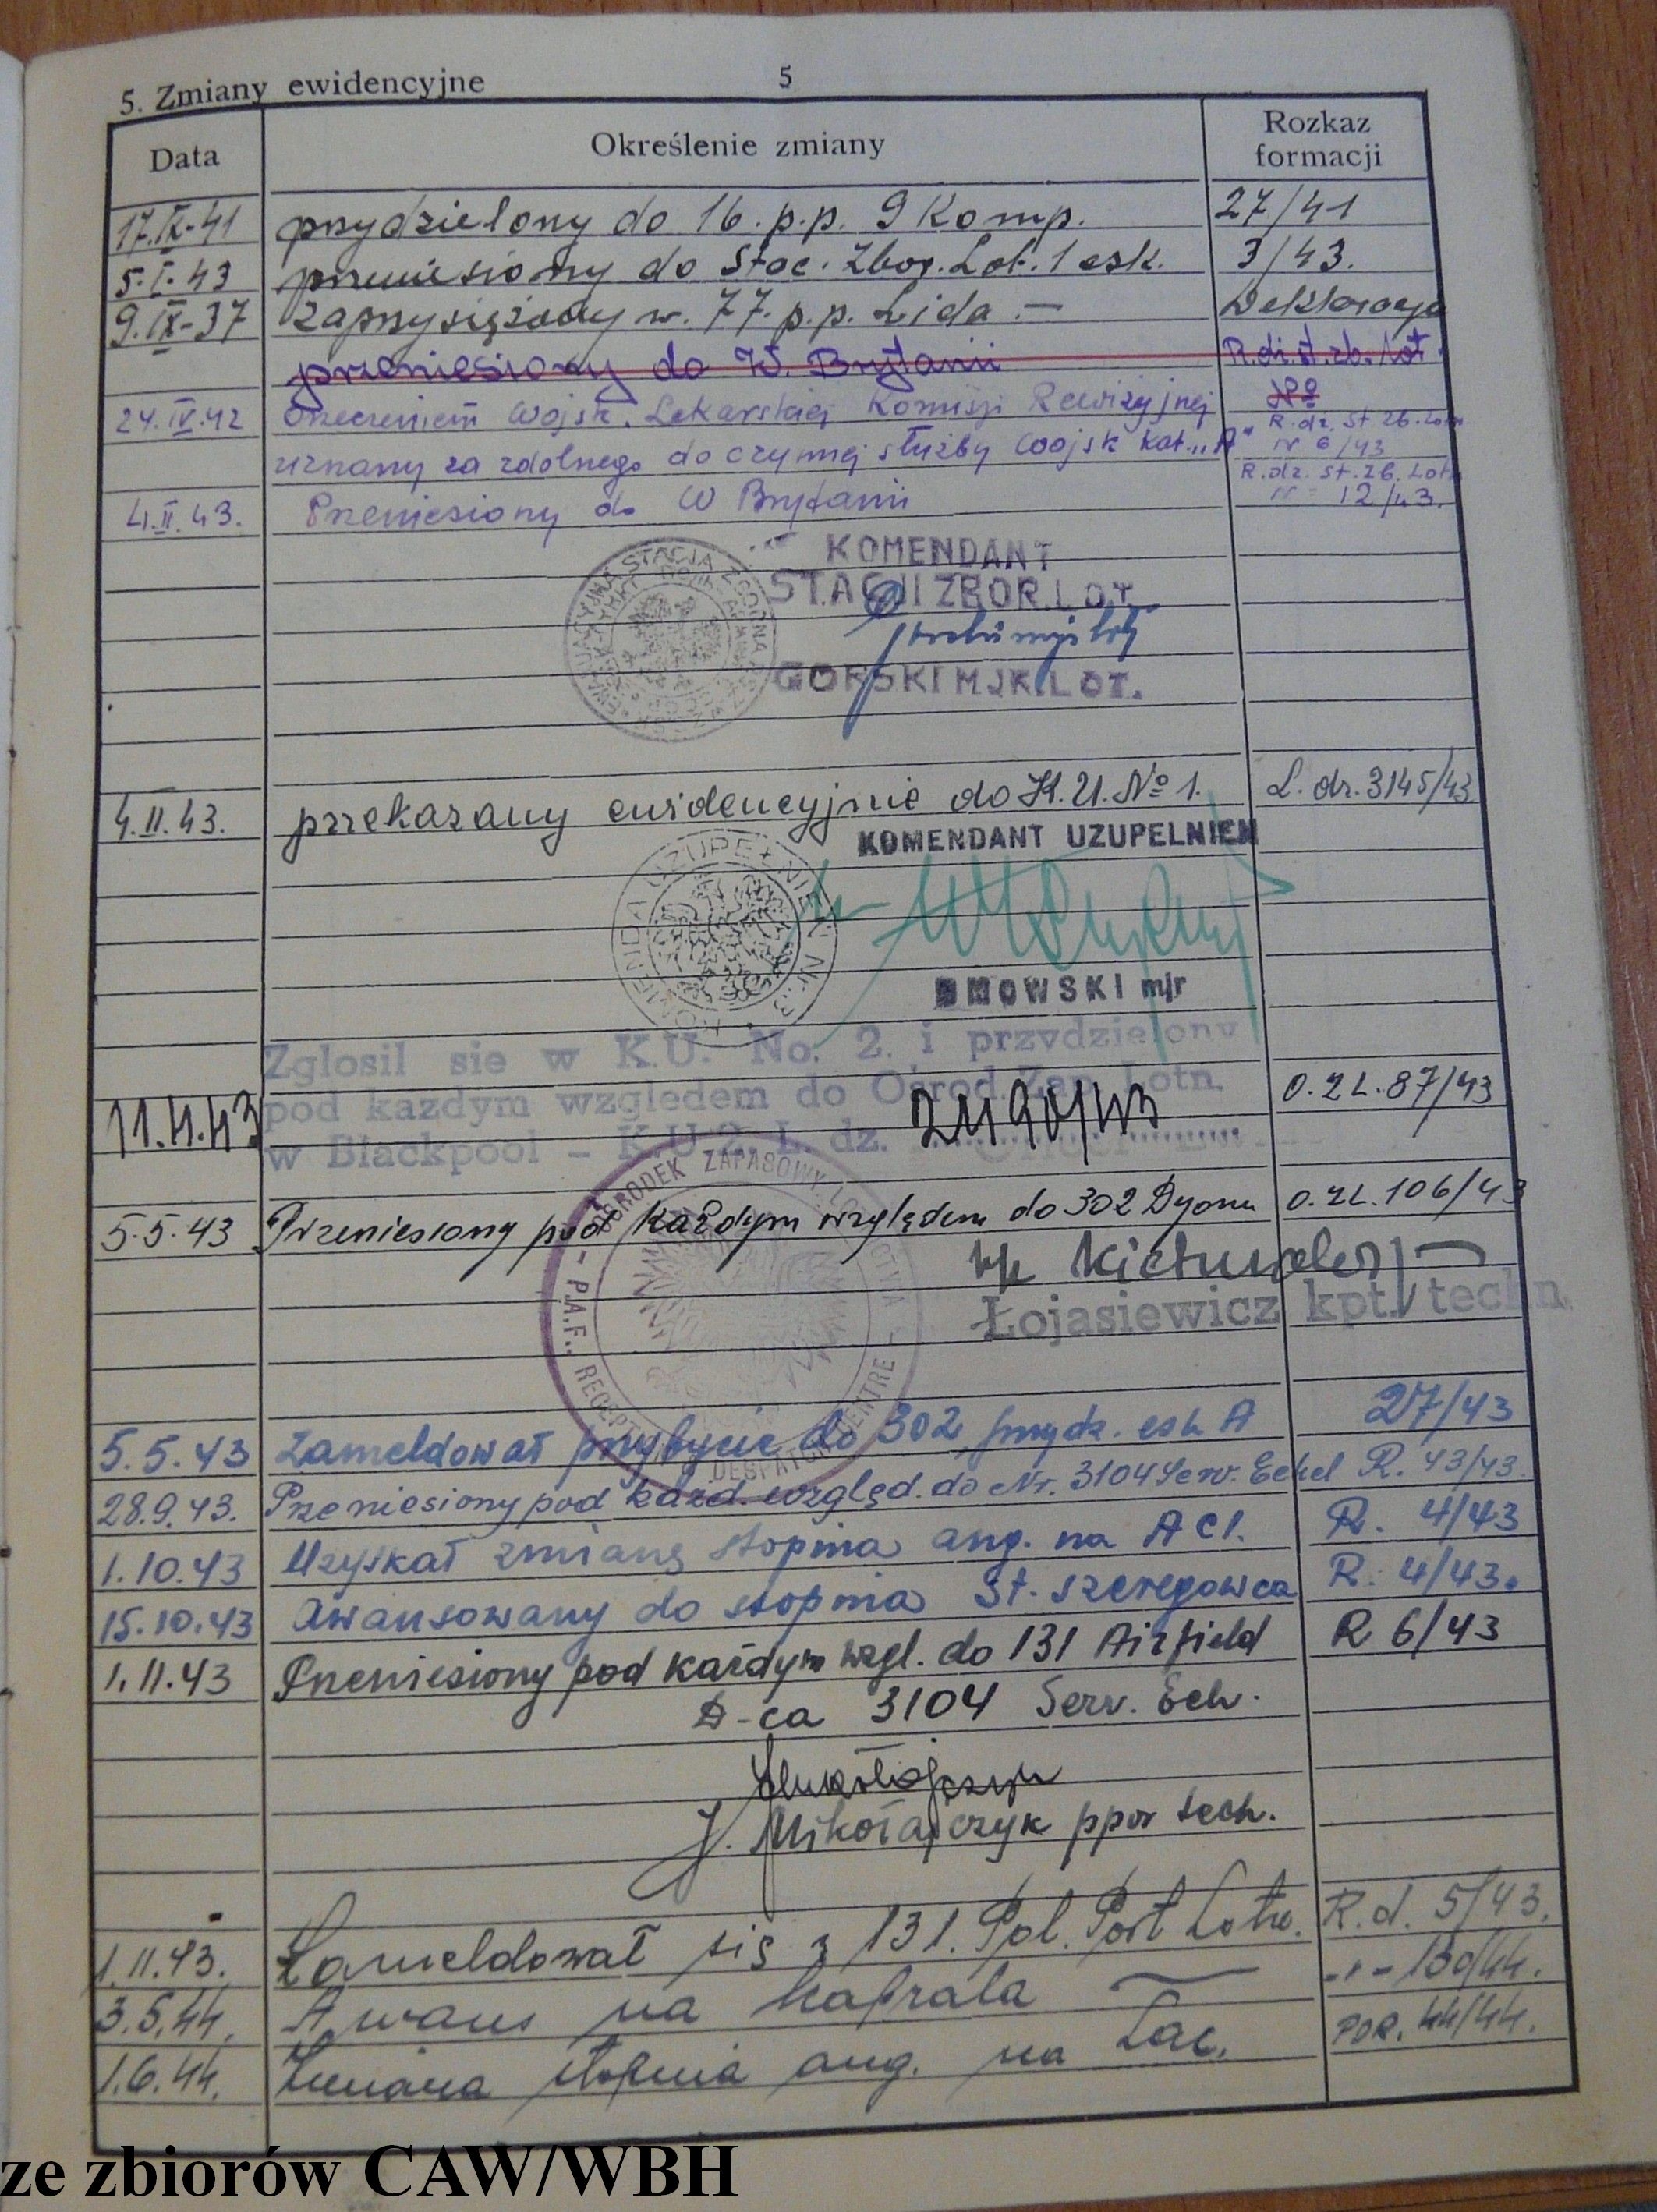 5. Zmiany ewidencyjne 5
Data Określenie zmiany Rozkaz formacji
17.IX.41 przydzielony do 16. p.p. 9 Komp. 27/41
5.I.43 przeniesiony do Stac. Zbor. Lot. 1 esk. 3/43.
9.IX-37 Zaprzysiężony w. 77. p.p. Lida. — Deklaracja
przeniesiony do W. Brytanii R.dz.st.zb.lot. No
24.IV.42 Orzeczeniem Wojsk. Lekarskiej Komisji Rewizyjnej R.dz. St Zb. Lotn
uznany za zdolnego do czynnej służby wojsk kat. „A" nr 6/43
4.II.43. Przeniesiony do W Brytanii R.dz. St. Zb. Lotn nr 12/43.
KOMENDANT
STACJI ZBOR. LOT.
GORSKI MJR. LOT.
4.II.43. przekazany ewidencyjnie do K.U. No 1. L. dz. 3145/43
KOMENDANT UZUPELNIEN
KOMENDA UZUPEŁNIEŃ Nr. 3
DMOWSKI mjr
Zglosil sie w K.U. No. 2. i przydzielony
pod kazdym wzgledem do Ośrod. Zap. Lotn. O.Z.L. 87/43
11.4.43 w Blackpool – K.U.2. L. dz. 2490/43
OŚRODEK ZAPASOWY LOTNICTWA – P.A.F. RECEPTION DESPATCH CENTRE –
5.5.43 Przeniesiony pod każdym względem do 302 Dyonu O.ZL. 106/43
Łojasiewicz kpt. techn.
5.5.43 Zameldował przybycie do 302 przydz. esk A 27/43
28.9.43. Przeniesiony pod każd. względ. do Nr. 3104 Serv. Echel R. 43/43.
1.10.43 Uzyskał zmianę stopnia ang. na AC1. R. 4/43
15.10.43 Awansowany do stopnia St. szeregowca R. 4/43.
1.11.43 Przeniesiony pod każdym wzgl. do 131 Airfield R 6/43
D-ca 3104 Serv. Ech.
J. Mikołajczyk ppor tech.
1.11.43. Zameldował się z 131. Pol. Port Lotn. R.d. 5/43.
3.5.44. Awans na kaprala -"- 130/44.
1.6.44. Zmiana stopnia ang. na Lac. POR. 44/44.
ze zbiorów CAW/WBH